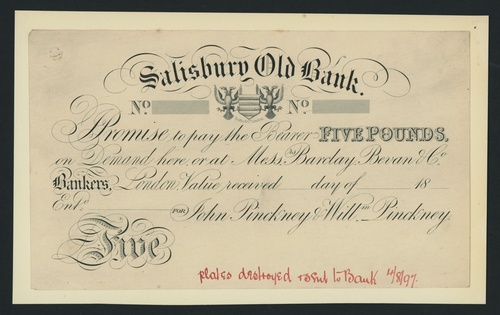 Salisbury Old Bank.
No No
Promise to pay the Bearer FIVE POUNDS,
on Demand here, or at Mess.rs Barclay, Bevan & Co.
Bankers, London Value received day of 18
Entd. FOR John Pinckney & Willm Pinckney.
Five
plates destroyed & sent to Bank 4/8/97.